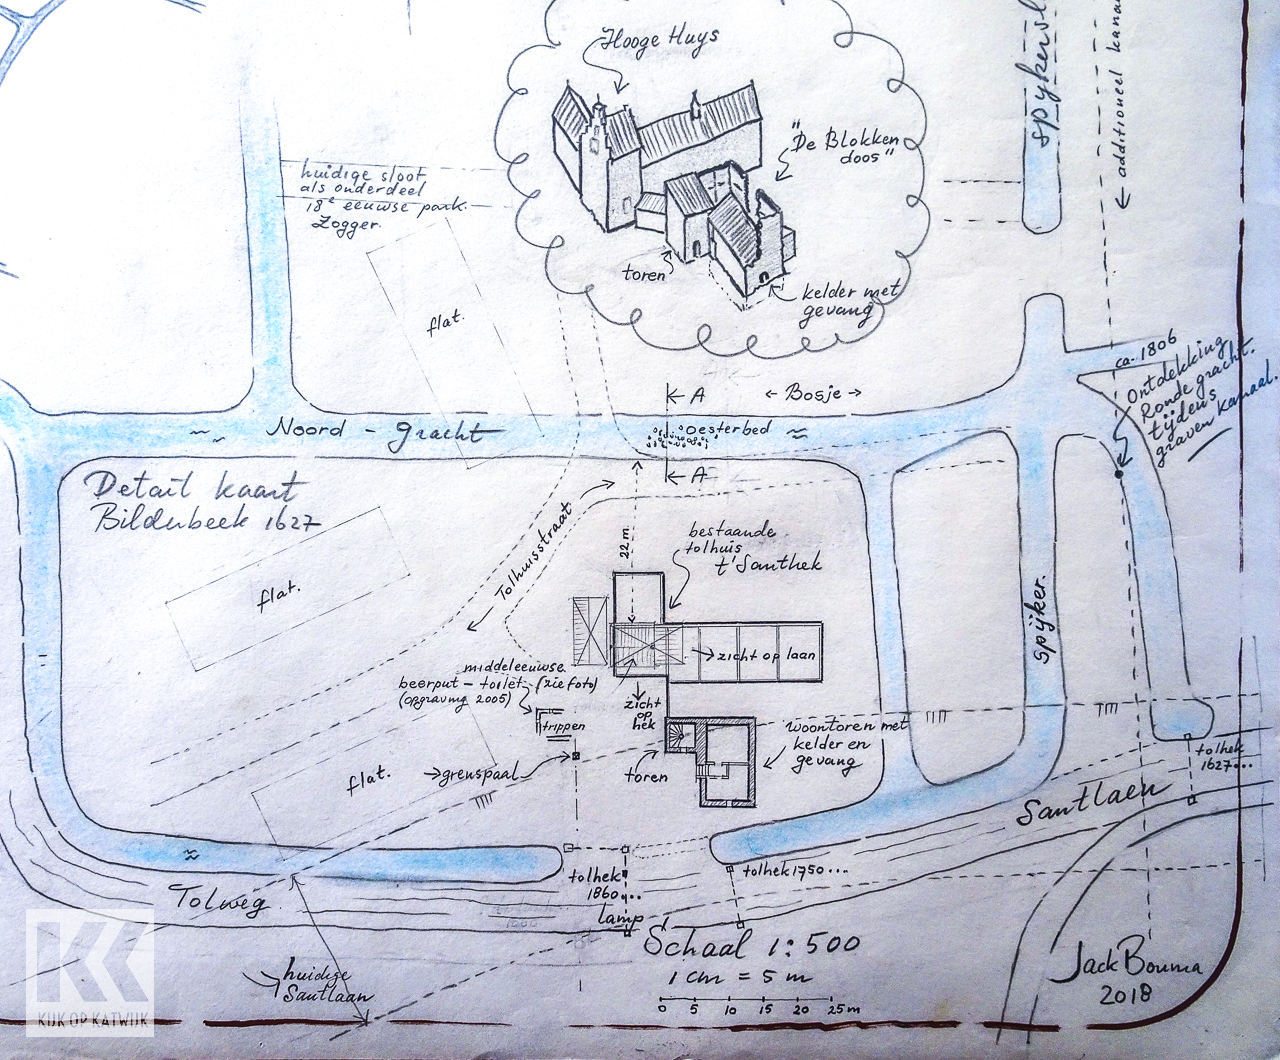 Hooge Huys
"De Blokken
doos"
toren
kelder met
gevang
huidige sloot
als onderdeel
18e eeuwse park.
Zogger.
flat.
additioneel
ca. 1806
Ontdekking
Ronde gracht.
tijdens
graven kanaal.
A
Bosje
Noord - gracht
oesterbed
A
Detail kaart
Bilderbeek 1627
Tolhuisstraat
22 m
bestaande
tolhuis
t' Santhek
flat.
zicht op laan
middeleeuwse
beerput - toilet - (zie foto)
(opgraving 2005)
trippen
zicht
op
hek
spijker.
woontoren met
kelder en
gevang
toren
flat.
grenspaal
tolhek
1627...
Santlaen
tolhek
1860...
lamp
tolhek 1750...
Tolweg
huidige
Santlaan
Schaal 1:500
1 cm = 5 m
0 5 10 15 20 25 m
Jack Bouma
2018
KIJK OP KATWIJK